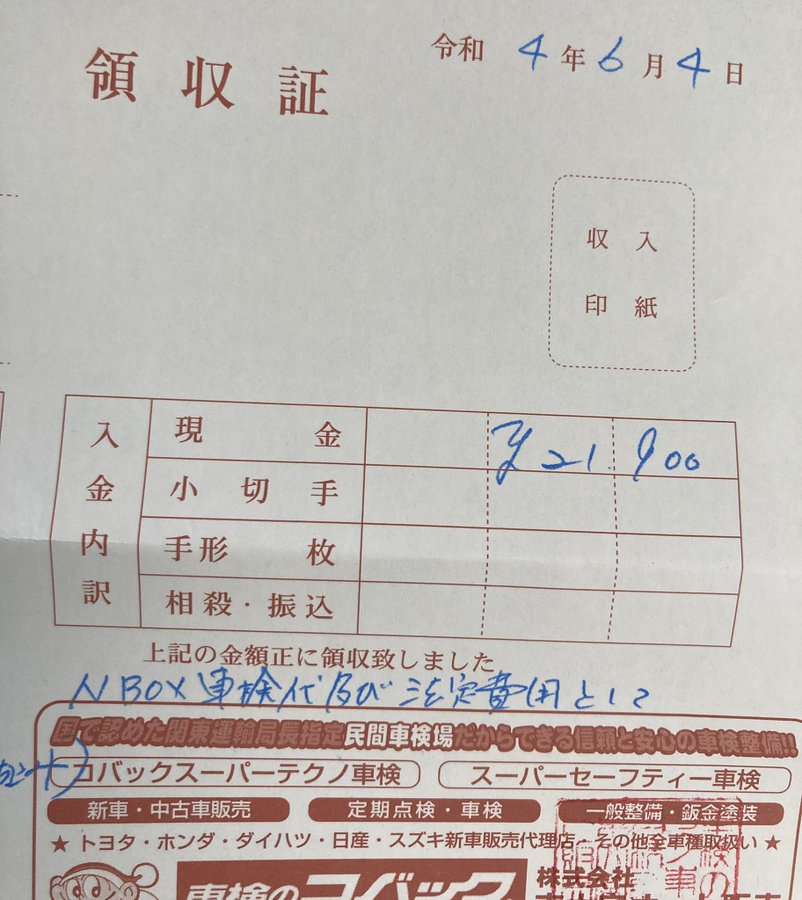 領収証
令和 4年 6月 4日
収入
印紙
入金内訳
現金 ¥21 900
小切手
手形 枚
相殺・振込
上記の金額正に領収致しました
N BOX 車検代及び法定費用として
国で認めた関東運輸局長指定民間車検場だからできる信頼と安心の車検整備!!
コバックスーパーテクノ車検 スーパーセーフティー車検
新車・中古車販売 定期点検・車検 一般整備・鈑金塗装
★トヨタ・ホンダ・ダイハツ・日産・スズキ新車販売代理店 その他全車種取扱い★
車検のコバック 株式会社